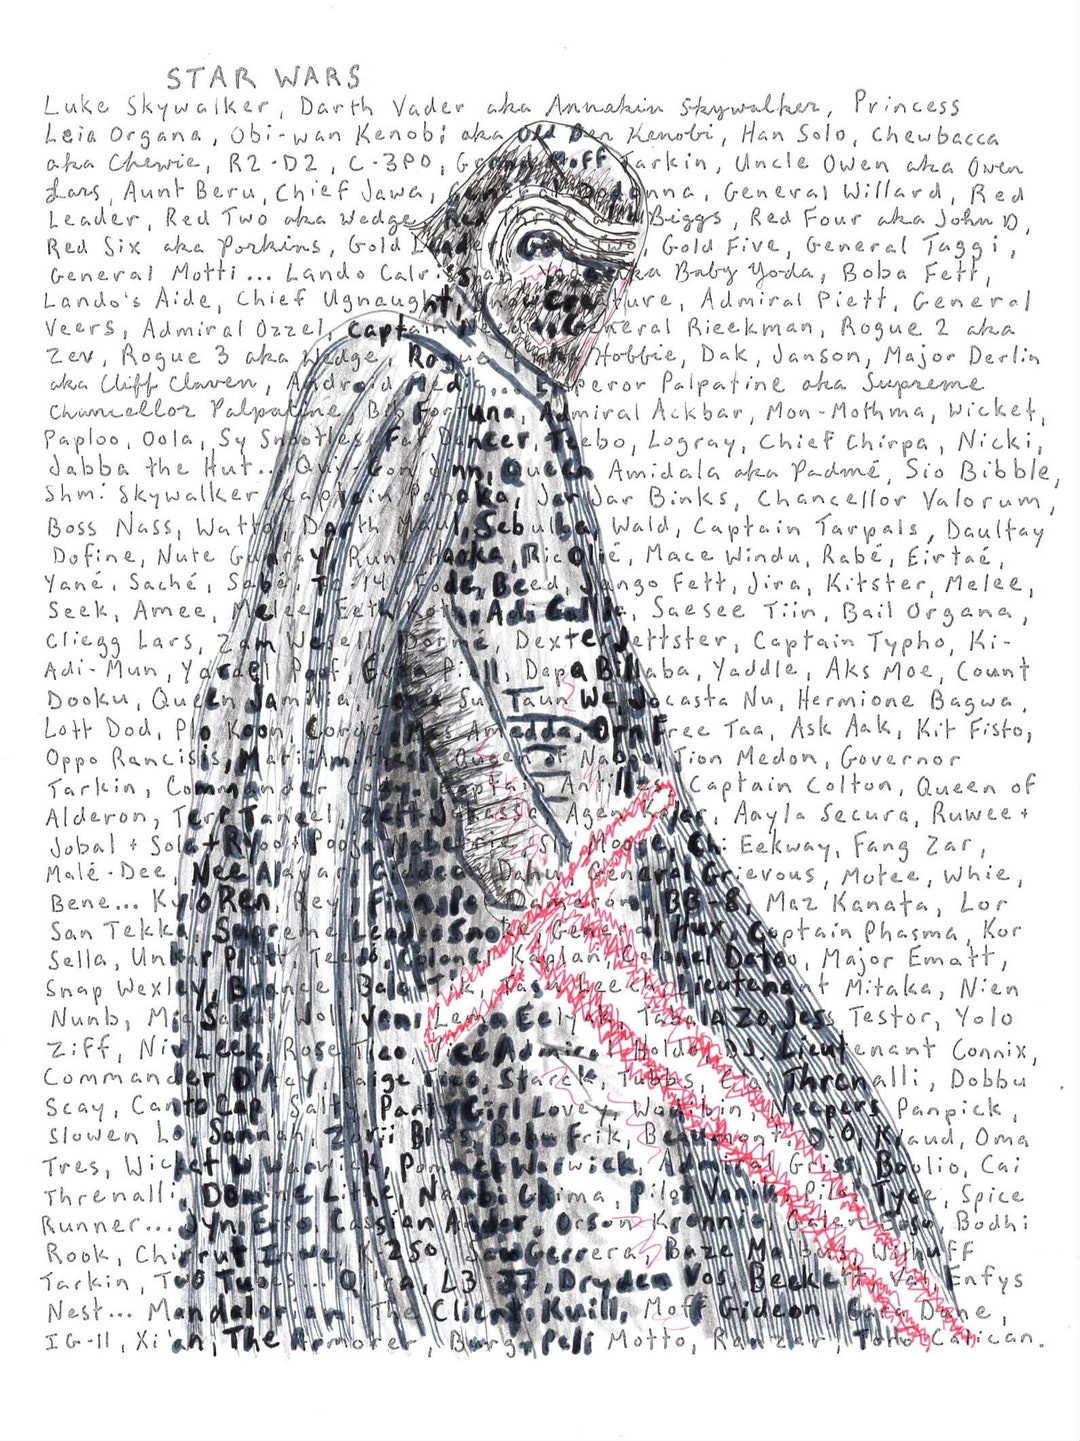 STAR WARS
Luke Skywalker, Darth Vader aka Annakin Skywalker, Princess
Leia Organa, Obi-wan Kenobi aka Old Ben Kenobi, Han Solo, Chewbacca
aka Chewie, R2-D2, C-3PO, Grand Moff Tarkin, Uncle Owen aka Owen
Lars, Aunt Beru, Chief Jawa, General Dodonna, General Willard, Red
Leader, Red Two aka Wedge, Red Three aka Biggs, Red Four aka John D,
Red Six aka Porkins, Gold Leader, Gold Two, Gold Five, General Taggi,
General Motti... Lando Calrissian, Yoda aka Baby Yoda, Boba Fett,
Lando's Aide, Chief Ugnaught, Snow Creature, Admiral Piett, General
Veers, Admiral Ozzel, Captain Needa, General Rieekman, Rogue 2 aka
Zev, Rogue 3 aka Wedge, Rogue 4 aka Hobbie, Dak, Janson, Major Derlin
aka Cliff Claven, Android Medic... Emperor Palpatine aka Supreme
Chancellor Palpatine, Bib Fortuna, Admiral Ackbar, Mon-Mothma, Wicket,
Paploo, Oola, Sy Snootles, Fat Dancer, Teebo, Logray, Chief Chirpa, Nicki,
Jabba the Hut... Qui-Gon Jinn, Queen Amidala aka Padmé, Sio Bibble,
Shmi Skywalker, Captain Panaka, Jar Jar Binks, Chancellor Valorum,
Boss Nass, Watto, Darth Maul, Sebulba, Wald, Captain Tarpals, Daultay
Dofine, Nute Gunray, Rune Haaka, Ric Olié, Mace Windu, Rabé, Eirtaé,
Yané, Saché, Sabé, TC-14, Fode, Beed, Jango Fett, Jira, Kitster, Melee,
Seek, Amee, Melee, Eeth Koth, Adi Gallia, Saesee Tiin, Bail Organa,
Cliegg Lars, Zam Wesell, Dormé, Dexter Jettster, Captain Typho, Ki-
Adi-Mun, Yarael Poof, Even Piell, Depa Billaba, Yaddle, Aks Moe, Count
Dooku, Queen Jamilla, Lama Su, Taun We, Jocasta Nu, Hermione Bagwa,
Lott Dod, Plo Koon, Cordé, Mas Amedda, Orn Free Taa, Ask Aak, Kit Fisto,
Oppo Rancisis, Mari Amithest, Queen of Naboo, Tion Medon, Governor
Tarkin, Commander Cody, Captain Antilles, Captain Colton, Queen of
Alderon, Terr Taneel, Zett Jukassa, Agen Kolar, Aayla Secura, Ruwee +
Jobal + Sola + Ryoo + Pooja Naberrie, Sly Moore, Chi Eekway, Fang Zar,
Malé-Dee, Nee Alavar, Giddean Danu, General Grievous, Motee, Whie,
Bene... Kylo Ren, Rey, Finn, Poe Dameron, BB-8, Maz Kanata, Lor
San Tekka, Supreme Leader Snoke, General Hux, Captain Phasma, Kor
Sella, Unkar Plutt, Teedo, Colonel Kaplan, Colonel Datoo, Major Ematt,
Snap Wexley, Brance, Bala-Tik, Tasu Leech, Lieutenant Mitaka, Nien
Nunb, Mi Sakul, Wol yeni, Lema Eelyak, Tabala Zo, Jess Testor, Yolo
Ziff, Niv Leek, Rose Tico, Vice Admiral Holdo, DJ, Lieutenant Connix,
Commander D'Acy, Paige Tico, Starck, Tubbs, C'ai Threnalli, Dobbu
Scay, Canto Cop, Salty, Party Girl Lovey, Wodibin, Jeepers Panpick,
Slowen Lo, Sannah, Zorii Bliss, Babu Frik, Beaumont, D-O, Klaud, Oma
Tres, Wicket W Warwick, Pommet Warwick, Admiral Griss, Boolio, Cai
Threnalli, Domine Lithe, Nambi Ghima, Pilot Vanik, Pilot Tyce, Spice
Runner... Jyn Erso, Cassian Andor, Orson Krennic, Galen Erso, Bodhi
Rook, Chirrut Imwe, K-2SO, Saw Gerrera, Baze Malbus, Wilhuff
Tarkin, Two Tubes... Qi'ra, L3-37, Dryden Vos, Beckett, Val, Enfys
Nest... Mandalorian, The Client, Kuill, Moff Gideon, Cara Dune,
IG-11, Xi'an, The Armorer, Burg, Peli Motto, Ranzar, Toro Calican.